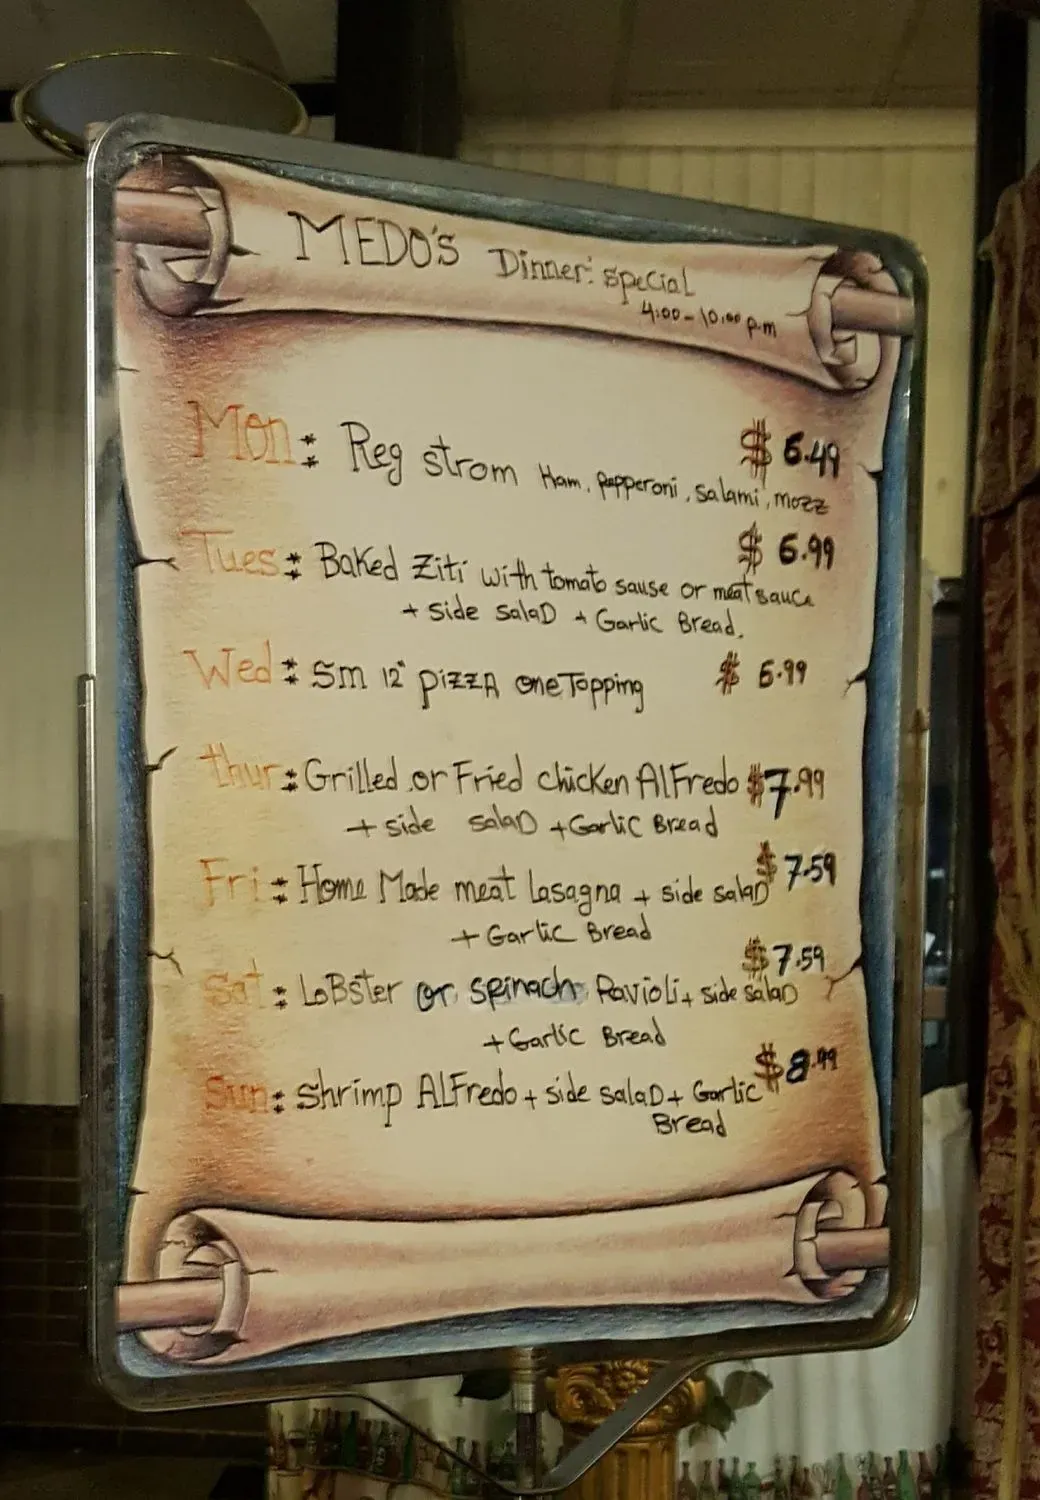 MEDO'S Dinner: special
4:00-10:00 p.m
Mon: Reg strom $ 6.49
Ham, pepperoni, salami, mozz
Tues: Baked Ziti with tomato sause or meat sauce $ 6.99
+ side salad + Garlic Bread.
Wed: Sm 12" Pizza one Topping $ 6.99
thur: Grilled or Fried chicken AlFredo $7.99
+ side salad + Garlic Bread
Fri: Home Made meat lasagna + side salad $7.59
+ Garlic Bread
Sat: LoBster or spinach Ravioli + side salad $7.59
+ Garlic Bread
Sun: Shrimp AlFredo + side salad + Garlic $8.99
Bread